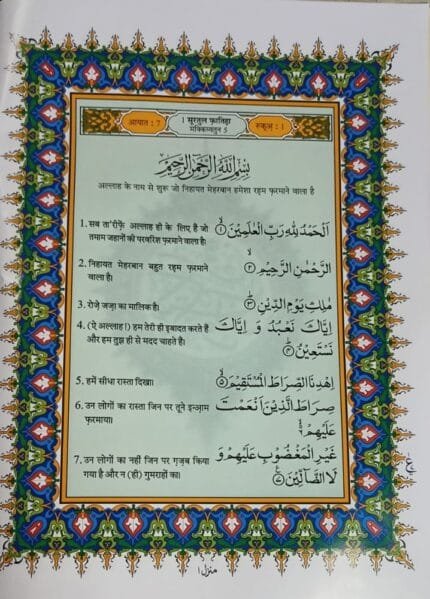 आयात : 7
1 सूरतुल फ़ातिहा
मक्किय्यतुन 5
रुकूअ् : 1
بِسْمِ اللّٰهِ الرَّحْمٰنِ الرَّحِيْمِ
अल्लाह के नाम से शुरू जो निहायत मेहरबान हमेशा रहम फ़रमाने वाला है
1. सब ता'रीफ़ें अल्लाह ही के लिए हैं जो
तमाम जहानों की परवरिश फ़रमाने वाला है।
اَلْحَمْدُ لِلّٰهِ رَبِّ الْعٰلَمِيْنَ ۙ﴿۱﴾
2. निहायत मेहरबान बहुत रहम फ़रमाने
वाला है।
الرَّحْمٰنِ الرَّحِيْمِ ۙ﴿۲﴾
3. रोज़े जज़ा का मालिक है।
مٰلِكِ يَوْمِ الدِّيْنِ ؕ﴿۳﴾
4. (ऐ अल्लाह!) हम तेरी ही इबादत करते हैं
और हम तुझ ही से मदद चाहते हैं।
اِيَّاكَ نَعْبُدُ وَ اِيَّاكَ
نَسْتَعِيْنُ ؕ﴿۴﴾
5. हमें सीधा रास्ता दिखा।
اِهْدِنَا الصِّرَاطَ الْمُسْتَقِيْمَ ۙ﴿۵﴾
6. उन लोगों का रास्ता जिन पर तूने इन्आ़म
फ़रमाया।
صِرَاطَ الَّذِيْنَ اَنْعَمْتَ
عَلَيْهِمْ ۙ﴿۶﴾
7. उन लोगों का नहीं जिन पर ग़ज़ब किया
गया है और न (ही) गुमराहों का।
غَيْرِ الْمَغْضُوْبِ عَلَيْهِمْ وَ
لَا الضَّآلِّيْنَ ﴿۷﴾
منزل ۱